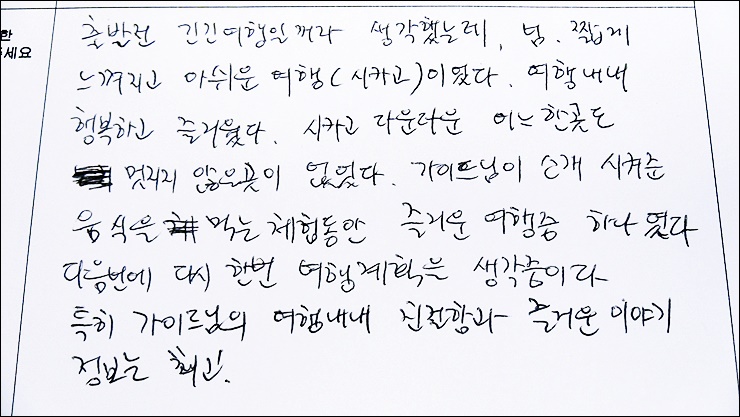 한
주세요
출발전 긴긴여행일꺼라 생각했는데, 넘. 짧게
느껴지고 아쉬운 여행(시카고)이였다. 여행내내
행복하고 즐거웠다. 시카고 다운타운 어느한곳도
멋지지 않은곳이 없었다. 가이드님이 소개 시켜준
음식을 먹는 체험동안 즐거운 여행중 하나 였다
다음번에 다시 한번 여행계획을 생각중이다
특히 가이드님의 여행내내 친절함과 즐거운 이야기
정보는 최고!